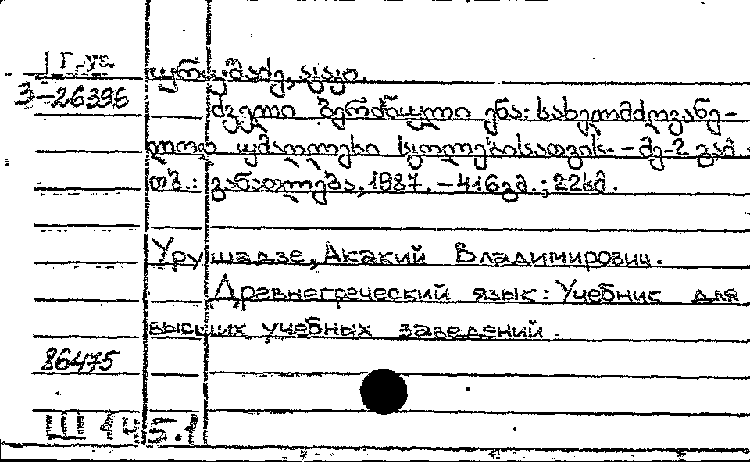 Г-уг.
ურუშაძე, აკაკი.
3-26396
ძველი ბერძნული ენა: სახელმძღვანე-
ლო უმაღლესი სკოლებისათვის. - მე-2 გამ.
თბ.: განათლება, 1987. - 416გვ.; 22სმ.
Урушадзе, Акакий Владимирович.
Древнегреческий язык: Учебник для
высших учебных заведений.
86475